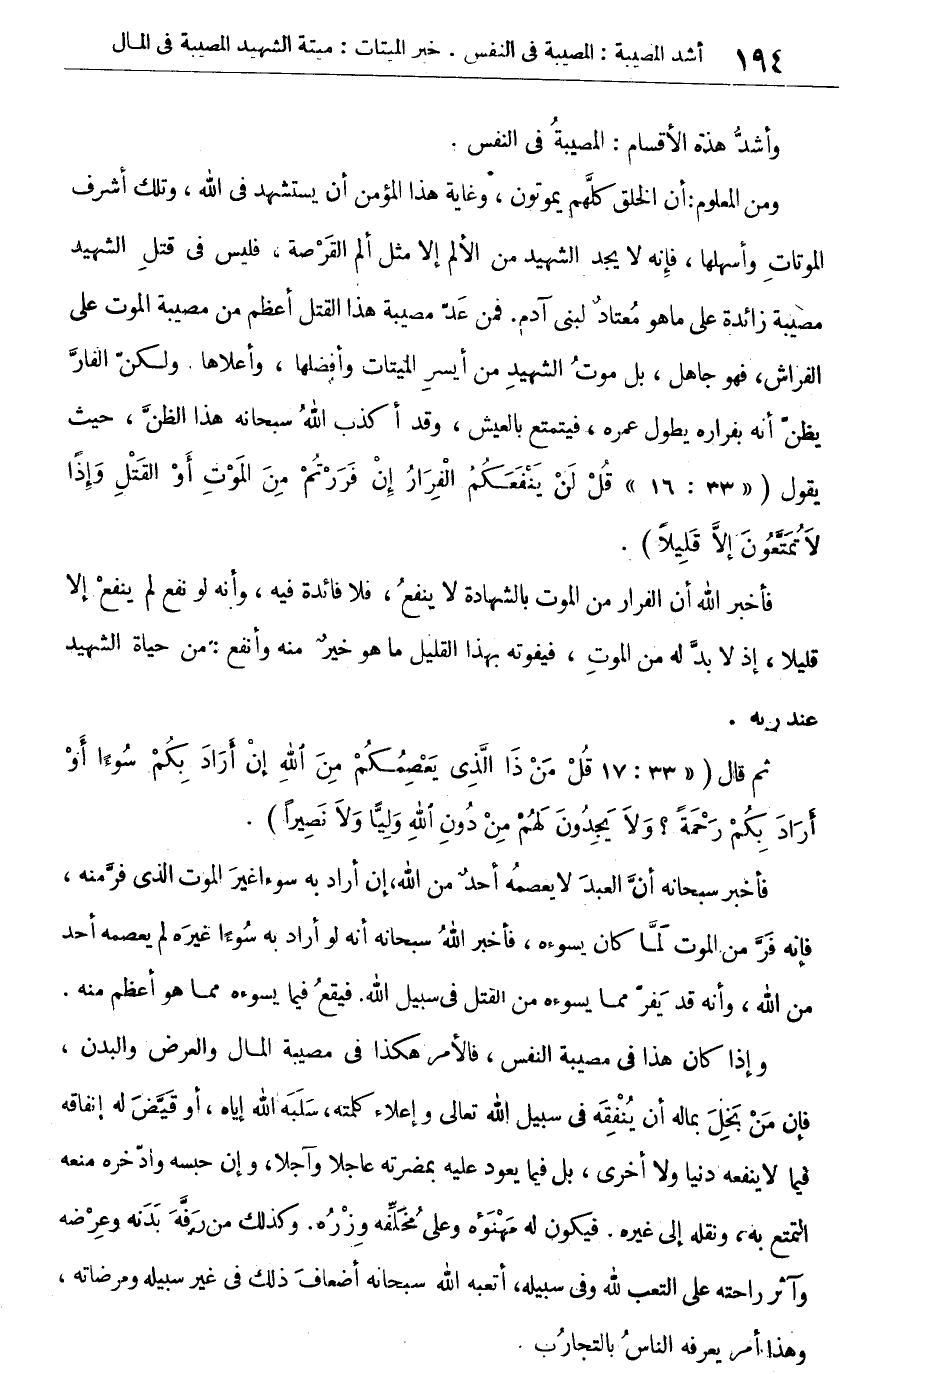 ١٩٤ أشد المصيبة : المصيبة فى النفس . خير الميتات : ميتة الشهيد المصيبة فى المال
وأشدُّ هذه الأقسام : المصيبةُ فى النفس .
ومن المعلوم:أن الخلق كلَّهم يموتون ، وغاية هذا المؤمن أن يستشهد فى الله ، وتلك أشرف
الموتاتِ وأسهلها ، فإنه لا يجد الشهيد من الألم إلا مثل ألم القَرْصة ، فليس فى قتلِ الشهيد
مصيبة زائدة على ماهو مُعتادٌ لبنى آدم. فمن عَدّ مصيبة هذا القتل أعظم من مصيبة الموت على
الفراش، فهو جاهل ، بل موتُ الشهيدِ من أيسرِ الميتات وأفضلها ، وأعلاها . ولكنّ الفارَّ
يظنّ أنه بفراره يطول عمره ، فيتمتع بالعيش ، وقد أكذب اللهُ سبحانه هذا الظنَّ ، حيث
يقول ( « ٣٣ : ١٦ » قُلْ لَنْ يَنْفَعَكُمُ الْفِرَارُ إِنْ فَرَرْتُمْ مِنَ المَوْتِ أَوْ القَتْلِ وَإِذًا
لاَ تُمَتَّعُونَ إلاَّ قَلِيلاً ) .
فأخبر الله أن الفرار من الموت بالشهادة لا ينفعُ ، فلا فائدة فيه ، وأنه لو نفع لم ينفعْ إلا
قليلا ، إذ لا بدَّ له من الموتِ ، فيفوته بهذا القليل ما هو خيرٌ منه وأنفع : من حياة الشهيد
عند ربه .
ثم قال ( « ٣٣ : ١٧ قُلْ مَنْ ذَا الَّذِى يَعْصِمُكُمْ مِنَ اللهِ إنْ أَرَادَ بِكُمْ سُوءًا أَوْ
أَرَادَ بِكُمْ رَحْمَةً ؟ وَلاَ يَجِدُونَ لَهُمْ مِنْ دُونِ اللهِ وَلِيًّا وَلاَ نَصِيراً ) .
فأخبر سبحانه أنَّ العبدَ لايعصمُه أحدٌ من الله،إن أراد به سوءاغيرَ الموت الذى فرَّ منه ،
فإنه فَرَّ من الموت لَمَّا كان يسوءه ، فأخبر اللهُ سبحانه أنه لو أراد به سُوءًا غيرَه لم يعصمه أحد
من الله ، وأنه قد يَفرّ مما يسوءه من القتل فى سبيل الله. فيقعُ فيما يسوءه مما هو أعظم منه .
وإذا كان هذا فى مصيبة النفس ، فالأمر هكذا فى مصيبة المال والعرض والبدن ،
فإن مَنْ بَخِلَ بماله أن يُنْفِقَه فى سبيل الله تعالى وإعلاء كلمته، سَلَبَه الله إياه ، أو قَيَّضَ له إنفاقه
فيما لاينفعه دنيا ولا أخرى ، بل فيما يعود عليه بمضرته عاجلا وآجلا، وإن حبسه وادّخره منعه
التمتع به، ونقله إلى غيره . فيكون له مَهْنَؤه وعلى مُخَلِّفه وِزْرُه. وكذلك من رَفَّهَ بَدَنه وعِرْضه
وآثر راحته على التعب لله وفى سبيله، أتعبه الله سبحانه أضعافَ ذلك فى غير سبيله ومرضاته ،
وهذا أمر يعرفه الناسُ بالتجاربُ .